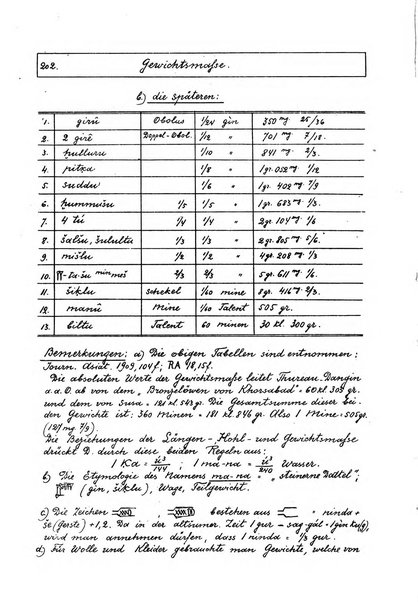 202. Gewichtsmaße.
b) die späteren:
1. girû Obolus 1/24 gin 350 mg 25/36
2. 2 girê Doppel-Obol. 1/12 " 701 mg 7/18.
3. hulluru 1/10 " 841 mg 2/3.
4. pitka 1/8 " 1gr. 052 mg 1/12
5. suddu 1/6 " 1gr. 402 mg 7/9
6. hummušu 1/5 1/5 " 1gr. 683 mg 1/3.
7. 4 tú 1/4 1/4 " 2gr 104 mg 1/6
8. šalšu, šulultu 1/3 1/3 " 2gr. 805 mg 5/6.
9. mišlu 1/2 1/2 " 4gr. 208 mg 1/3
10. -ta-šu min meš 2/3 2/3 " 5gr. 611 mg 1/6.
11. šiklu Schekel 1/60 mine 8gr. 416 mg 2/3.
12. manû Mine 1/60 Talent 505 gr.
13. biltu Talent 60 minen 30 kl. 300 gr.
Bemerkungen: a) Die obigen Tabellen sind entnommen:
Journ. Asiat. 1909, 104f.; RA 18, 15f.
Die absoluten Werte der Gewichtsmaße leitet Thureau. Dangin
a.a.O. ab von dem "Bronzelöwen von Khorsabad" = 60 kl 303 gr.
und dem von Susa = 121 kl 543 gr. Die Gesamtsumme dieser bei-
den Gewichte ist: 360 minen = 181 kl. 846 gr. Also 1 Mine = 505 gr.
(127 mg 7/9).
Die Beziehungen der Längen-, Hohl- und Gewichtsmaße
drückt D. durch diese beiden Regeln aus:
1 Ka = ú³/144 ; 1 ma-na = ú³/240 Wasser.
b) Die Etymologie des Namens ma-na = "steinerne Dattel";
(gin, šiklu), Wage, Teilgewicht.
c) Die Zeichen , bestehen aus = ninda +
še (Gerste) + 1, 2. Da in der altsumer. Zeit 1 gur - sag-gál = 1 gin
wird man annehmen dürfen, dass 1 ninda = 1/3 gur.
d) Für Wolle und Kleider gebrauchte man Gewichte, welche von